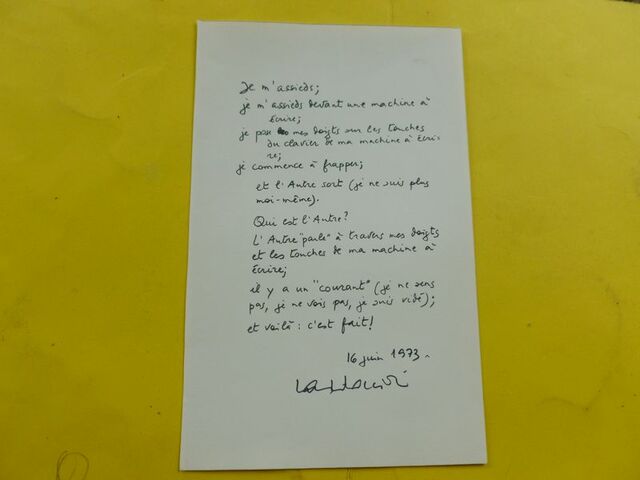 Je m'assieds;
je m'assieds devant une machine à
écrire;
je pose mes doigts sur les touches
du clavier de ma machine à écri-
re;
je commence à frapper;
et l'Autre sort (je ne suis plus
moi-même).
Qui est l'Autre?
L'Autre "parle" à travers mes doigts
et les touches de ma machine à
écrire;
il y a un "courant" (je ne sens
pas, je ne vois pas, je suis vidé);
et voilà : c'est fait!
16 juin 1973.